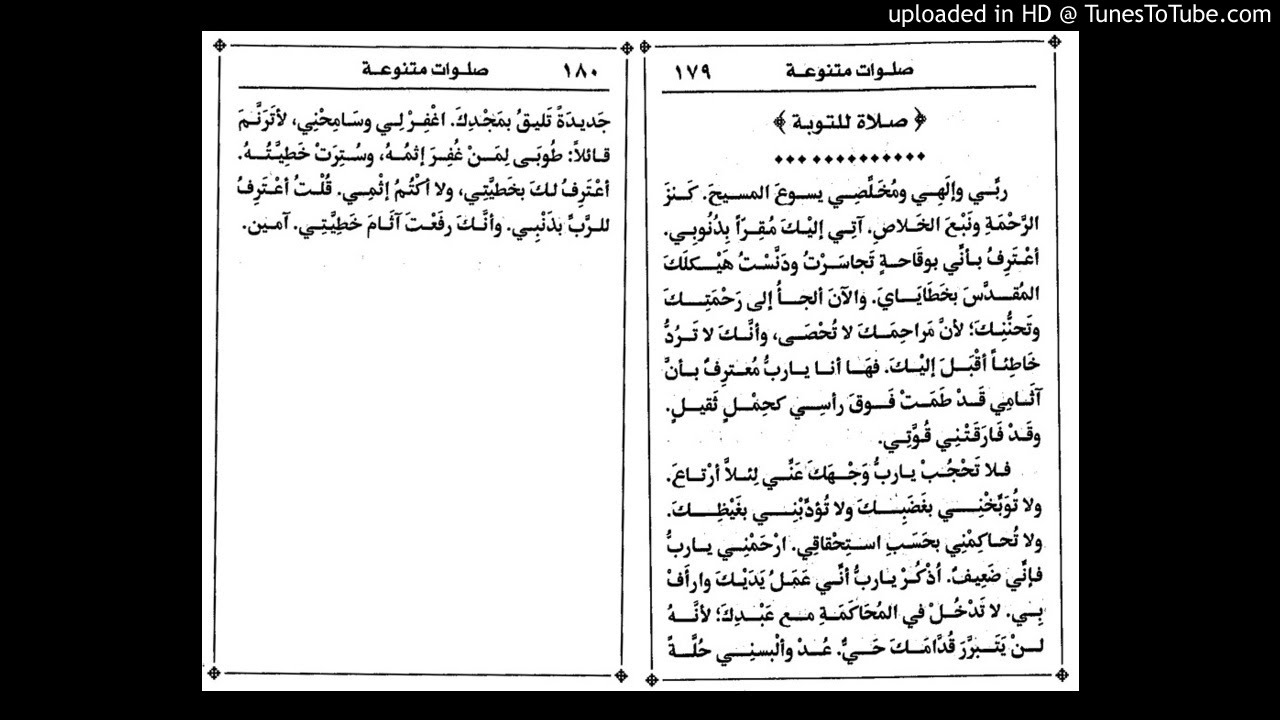 uploaded in HD @ TunesToTube.com
صلوات متنوعة ١٧٩
﴿ صلاة للتوبة ﴾
ربِّي وإلَهِي ومُخَلِّصِي يسوعَ المسيحَ. كَنزَ
الرَّحْمَةِ ونَبْعَ الخَلاصِ. آتِي إليْكَ مُقِرّاً بِذُنُوبِي.
أعْتَرِفُ بأنِّي بوقَاحةٍ تَجاسَرْتُ ودَنَّسْتُ هَيْكلَكَ
المُقدَّسَ بخَطَايَايَ. والآنَ ألجأُ إلى رَحْمَتِكَ
وتَحنُّنِكَ؛ لأنَّ مَراحِمَكَ لا تُحْصَى، وأنَّكَ لا تَرُدُّ
خَاطِئاً أقْبَلَ إليْكَ. فهَا أنا ياربُّ مُعترِفٌ بأنَّ
آثَامِي قَدْ طَمَتْ فَوقَ رأسِي كحِمْلٍ ثَقيلٍ.
وقَدْ فَارَقَتْنِي قُوَّتِي.
فلا تَحْجُبْ ياربُّ وَجْهَكَ عَنِّي لِئلاَّ أرْتاعَ.
ولا تُوَبِّخْنِي بغَضَبِكَ ولا تُؤدِّبْنِي بغَيْظِكَ.
ولا تُحاكِمْنِي بحَسَبِ استِحْقاقِي. ارْحَمْنِي ياربُّ
فإنِّي ضَعِيفٌ. أذْكُرْ ياربُّ أنِّي عَمَلُ يَدَيْكَ وارأَفْ
بِي. لا تَدْخُلْ في المُحَاكَمَةِ مع عَبْدِكَ؛ لأنَّهُ
لنْ يَتَبرَّرَ قُدَّامَكَ حَيٌّ. عُدْ وألْبسنِي حُلَّةً
صلوات متنوعة ١٨٠
جَديدَةً تَليقُ بمَجْدِكَ. اغْفِرْ لِي وسَامِحْنِي، لأتَرَنَّمَ
قائلاً: طُوبَى لِمَنْ غُفِرَ إثمُهُ، وسُتِرَتْ خَطِيَّتُهُ.
أعْتَرِفُ لكَ بخَطيَّتِي، ولا أكْتُمُ إثْمِي. قُلْتُ أعْتَرِفُ
للرَّبِّ بذَنْبِي. وأنَّكَ رفَعْتَ آثَامَ خَطِيَّتِي. آمين.